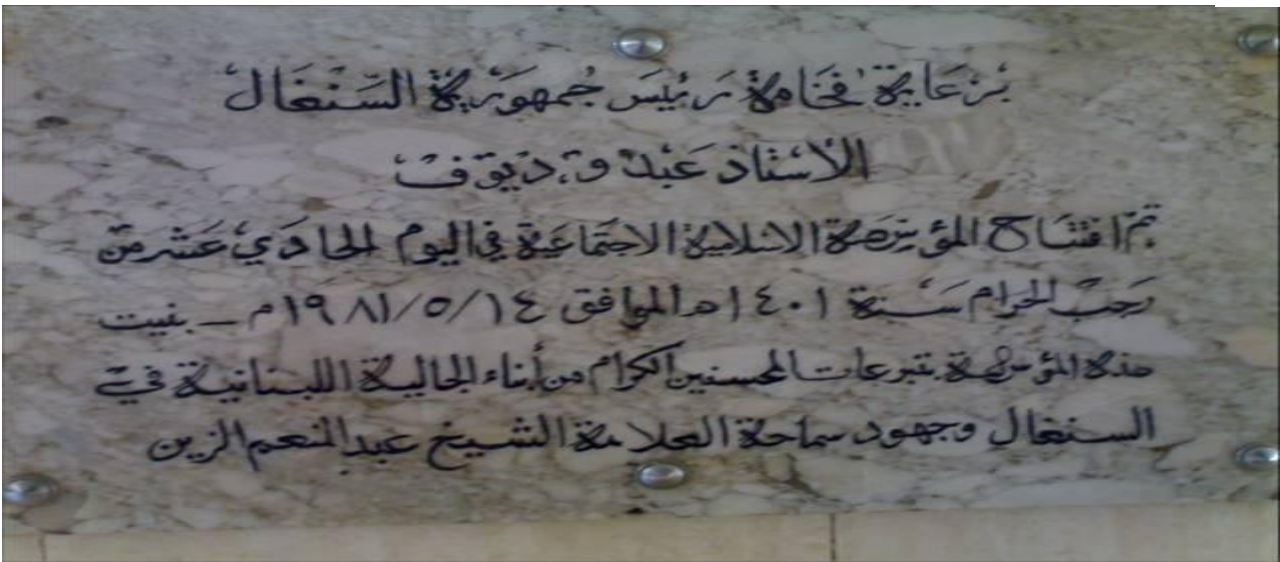 برعاية فخامة رئيس جمهورية السنغال
الأستاذ عبد و ديوف
تم افتتاح المؤسسة الاسلامية الاجتماعية في اليوم الحادي عشر من
رجب الحرام سنة ١٤٠١ هـ الموافق ١٩٨١/٥/١٤ م - بنيت
هذه المؤسسة بتبرعات المحسنين الكرام من أبناء الجالية اللبنانية في
السنغال وجهود سماحة العلامة الشيخ عبد المنعم الزين